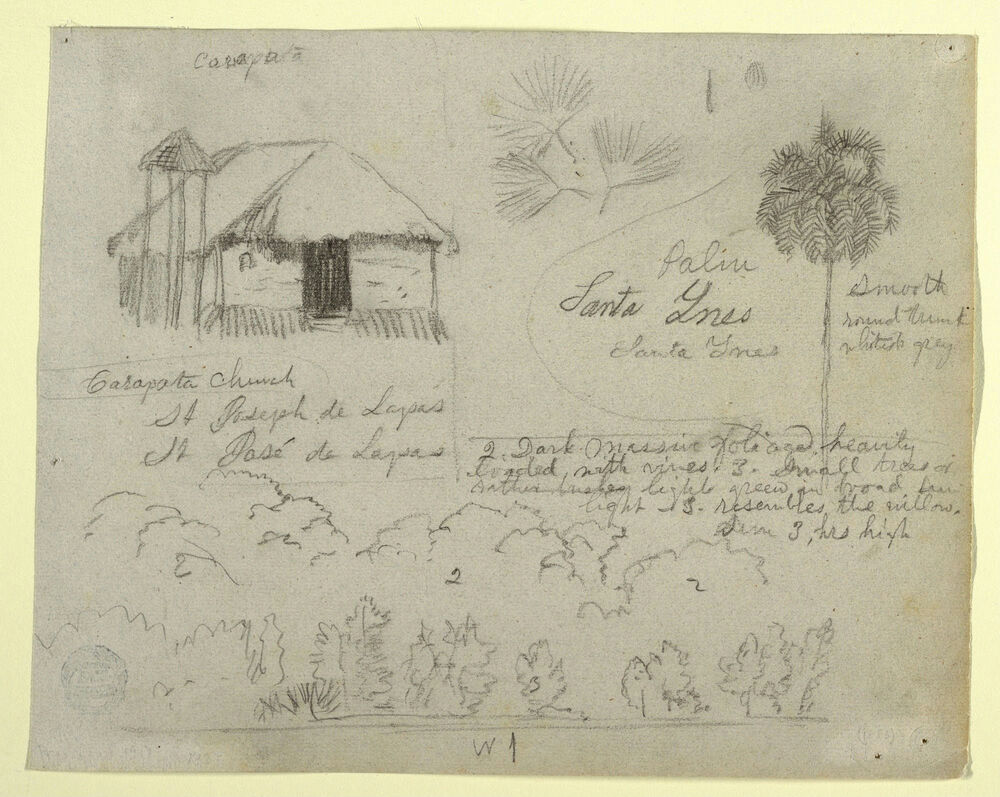 Carapata
Palm
Santa Ynes
Santa Ynes
Smooth
round trunk
whitish grey
Carapata Church
St Joseph de Lapas
St José de Lapas
2. Dark massive foliage, heavily
loaded, with vines. 3. Small trees or
rather bushes light green in broad sun
light 3. resembles, the willow.
Sun 3, hrs high
2
2
2
3
W 1